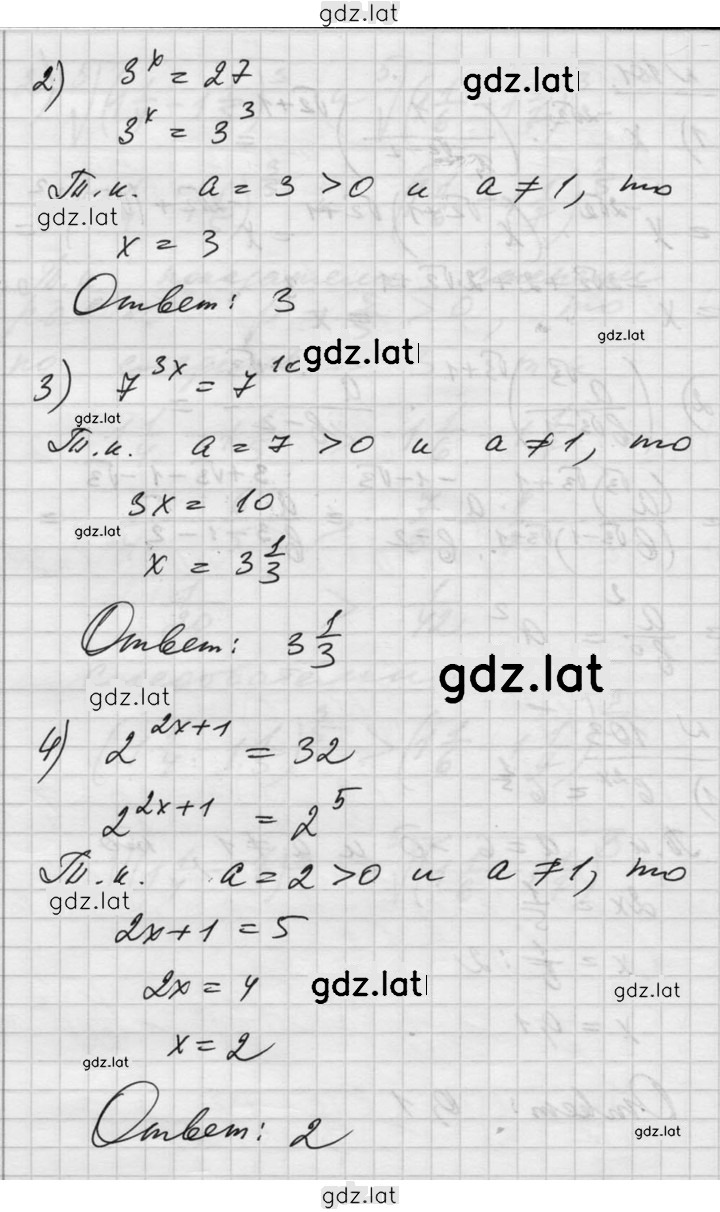 gdz.lat
2) 3^x = 27 gdz.lat
3^x = 3^3
Т.к. a = 3 > 0 и a ≠ 1, то
gdz.lat
x = 3
Ответ: 3
gdz.lat
gdz.lat
3) 7^3x = 7^10
gdz.lat
Т.к. a = 7 > 0 и a ≠ 1, то
3x = 10
gdz.lat
x = 3 1/3
Ответ: 3 1/3
gdz.lat
gdz.lat
4) 2^2x+1 = 32
2^2x+1 = 2^5
Т.к. a = 2 > 0 и a ≠ 1, то
gdz.lat
2x+1 = 5
2x = 4 gdz.lat gdz.lat
x = 2
gdz.lat
Ответ: 2
gdz.lat
gdz.lat